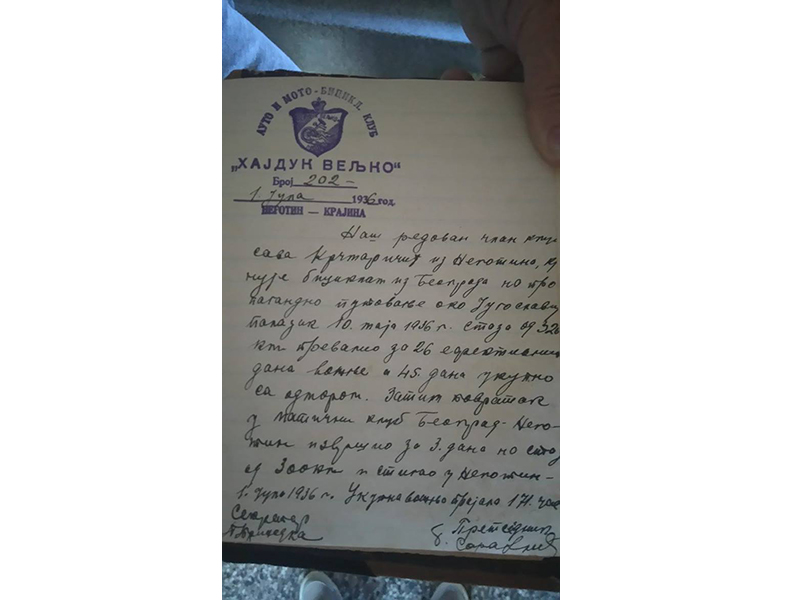 АУТО И МОТО-БИЦИКЛ. КЛУБ
„ХАЈДУК ВЕЉКО“
Број 202 —
1. Јула 1936 год.
НЕГОТИН — КРАЈИНА
Наш редован члан
сава Крчмаричић из Неготина,
бициклом из Београда на про
пагандно путовање око Југославиј
полазак 10. маја 1936 г. стазу од 320
км превалио за 26 ефективних
дана вожње а 45. дана укупно
са одмором. Затим повратак
у матични клуб Београд-Него-
тин извршио за 3. дана но стазу
од 300км и стигао у Неготин-
1. Јула 1936 г. Укупна вожња трајала 171. час
Секретар
Претседник